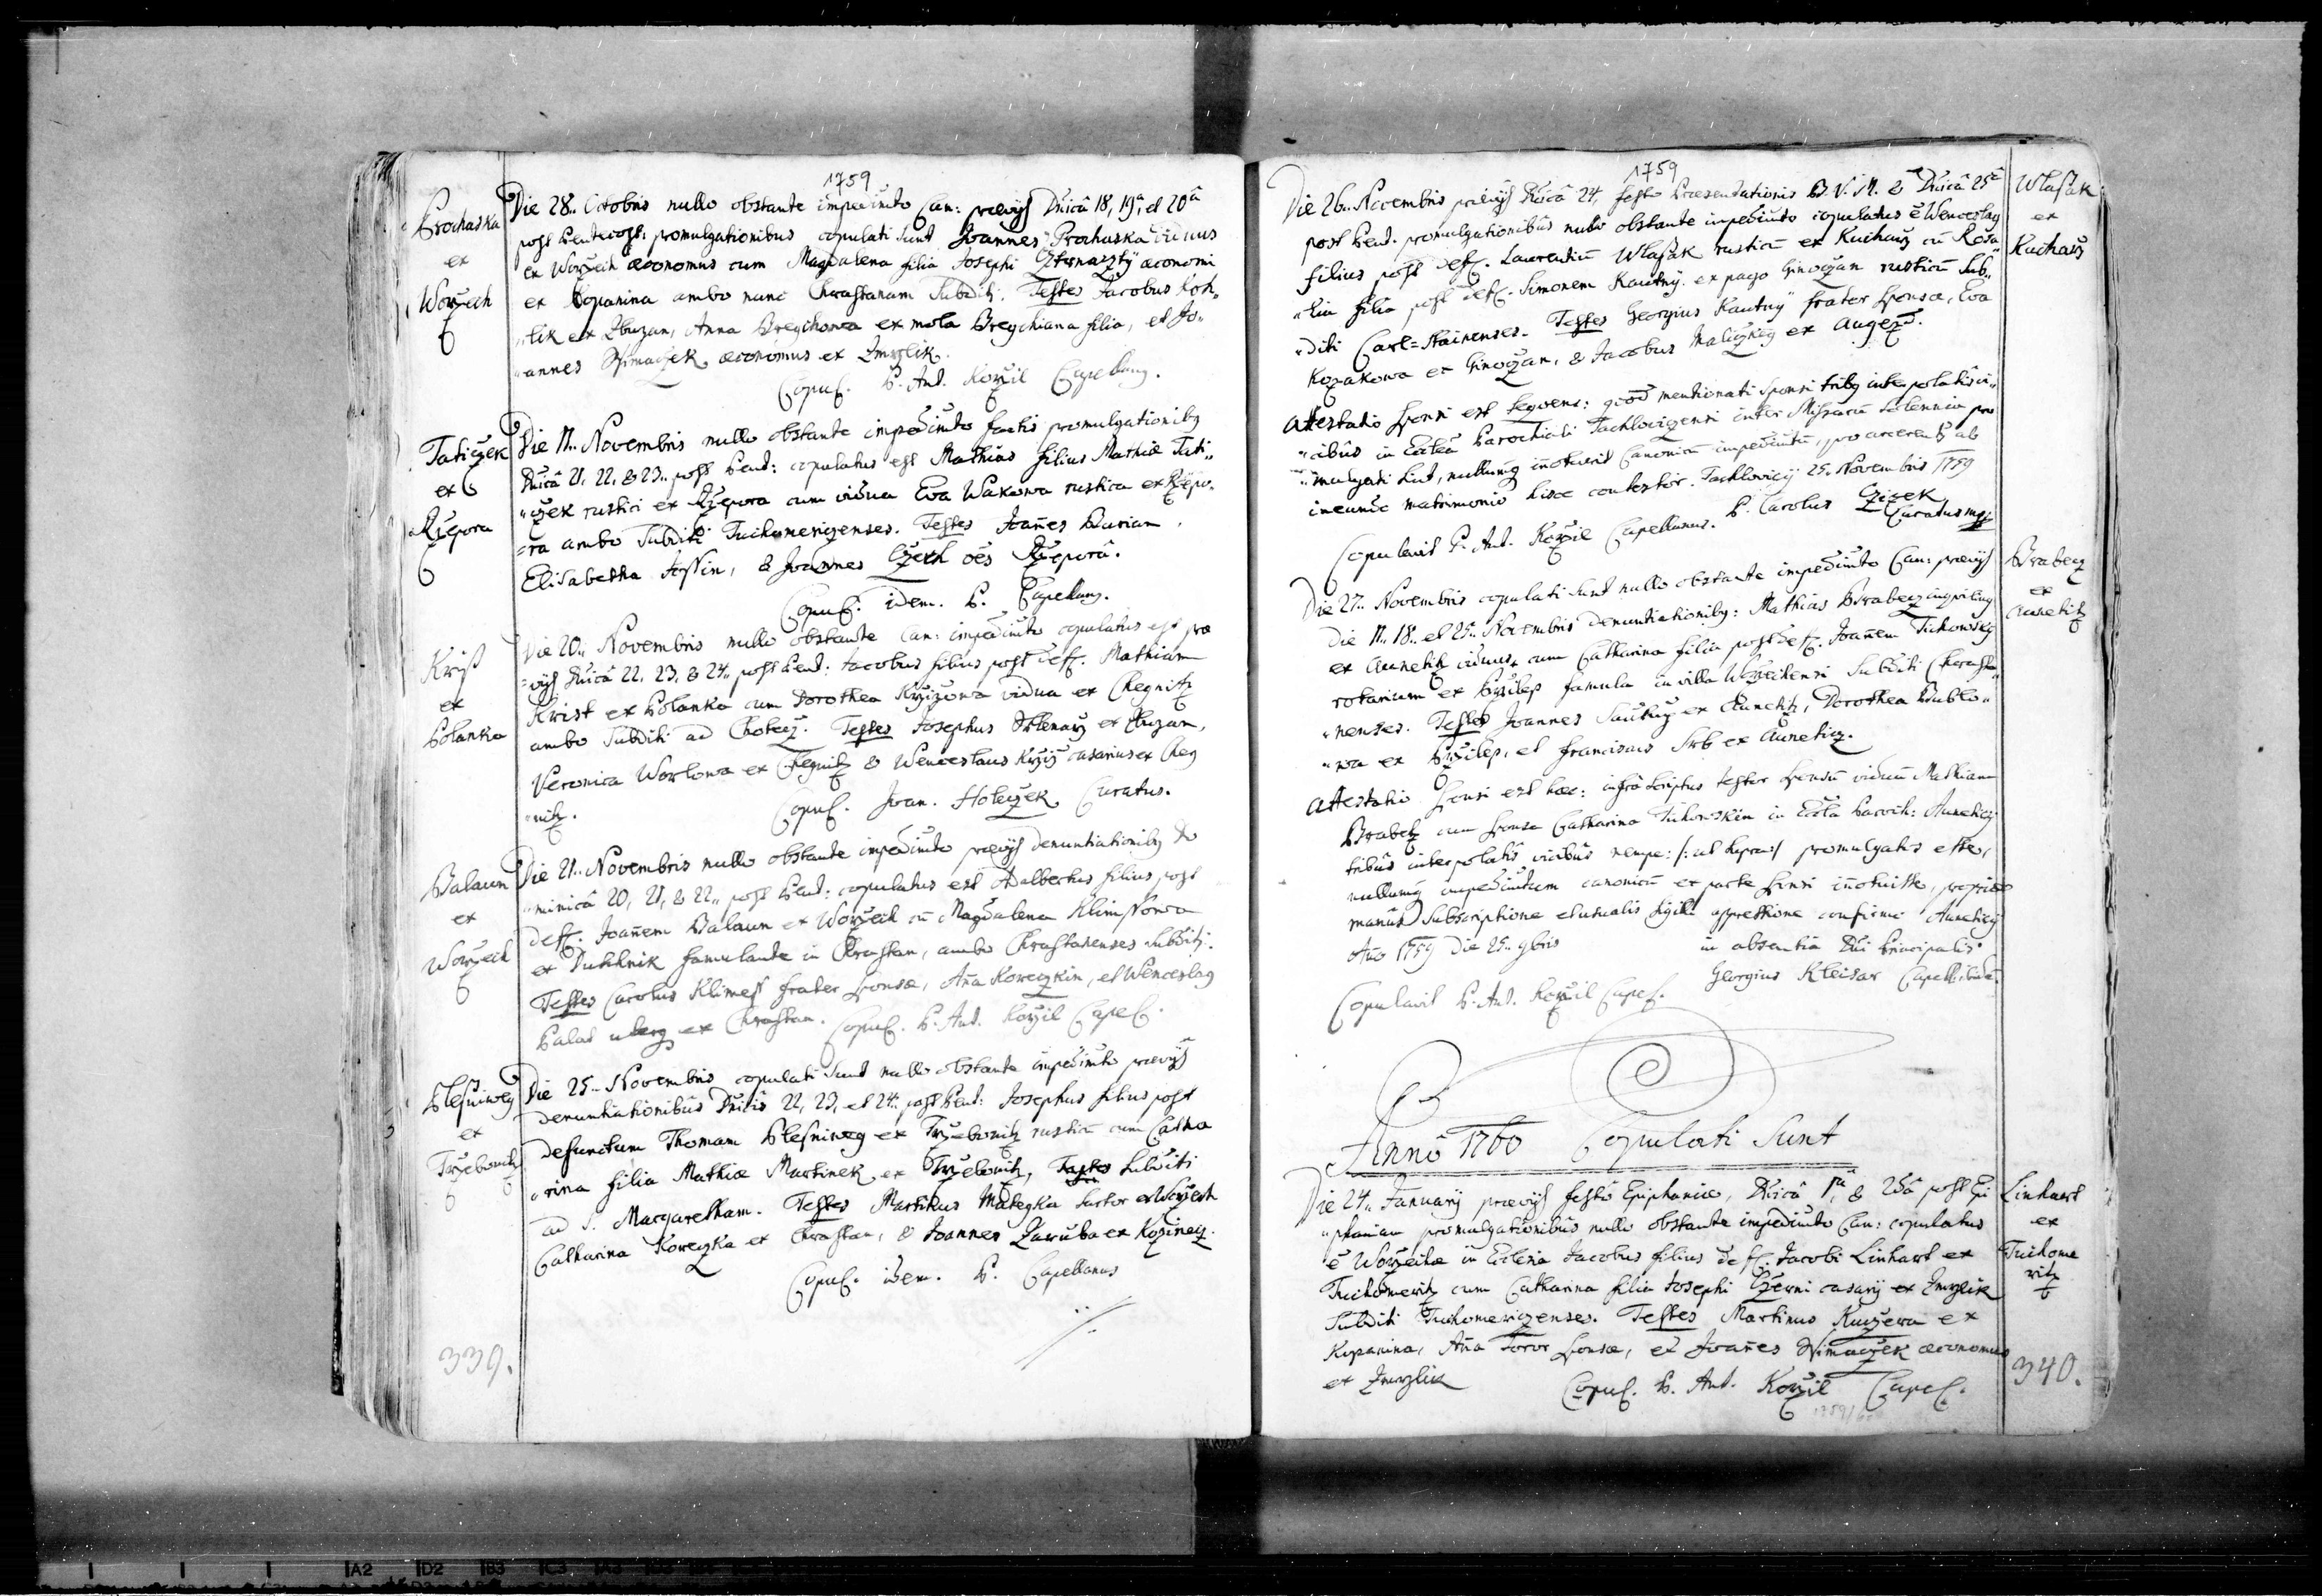 1759
Prochaska
ex
Worżech
Die 28.. Octobris nullo obstante impedimto Can: prævijs Dnicâ 18, 19â, et 20â
post Pentecost: promulgationibus copulati sunt Joannes Prochaska viduus
ex Worżech œconomus cum Magdalena filia Josephi œconomi
ex Kopanina ambo nunc Chrastanam Subditi. Testes Jacobus Koh„
„lik ex Zbuzan, Anna Breychowa ex mola Breychiana filia, et Jo„
„annes Ssimaczek œconomus ex Zmrzlik.
Copul. P. Ant. Korżil Capellanus.
Taticzek
ex
Rżepora
Die 11.. Novembris nullo obstante impedimto factis promulgationibus
Dnicâ 21, 22, & 23.. post Pent: copulatus est Mathias filius Mathiæ Tati„
„czek rustici ex Rżepora cum vidua Eva Wakowa rustica ex Rżepo„
„ra ambo Subditi Tuchomerizenses. Testes Joañes Burian,
Elisabetha Jossin, & Joannes Czech oēs Rżeporâ.
Copul. idem. P. Capellanus.
Krist
ex
Polanka
Die 20.. Novembris nullo obstante Can: impedimto copulatus est præ
„vijs Dnicâ 22, 23, & 24.. post Pent: Jacobus filius post deff. Mathiam
Krist ex Polanka cum Dorothea Krżiżowa vidua ex Chegnitz
ambo Subditi ad Chotecz. Testes Josephus Sklenarż ex Zbuzan,
Veronica Worlowa ex Chegnitz & Wenceslaus Krżiż casarius ex Cheg
„nitz.
Copul. Joan. Holeczek Curatus.
Balaun
ex
Worżech
Die 21.. Novembris nullo obstante impedimto prævijs denuntiationibus Do
„minicâ 20, 21, & 22.. post Pent: copulatus est Adalbertus filius post
deff. Joañem Balaun ex Worżech cū Magdalena Klimssowa
ex Duchnik famulante in Chrastan, ambo Chrastanenses Subditi.
Testes Carolus Klimess frater Sponsæ, Aña Koreczkin, et Wenceslaus
ex Chrastan. Copul. P. Ant. Korżil Capel.
Plesniweg
ex
Trżebonitz
Die 25.. Novembris copulati sunt nullo obstante impedimto prævijs
denuntiationibus Dnicis 22, 23, et 24.. post Pent: Josephus filius post
defunctum Thomam Plesniweg ex Trżebonitz rusticū cum Catha
„rina filia Mathiæ Martinek ex Trżebonitz, Testes Subditi
ad S. Margaretham. Testes Martinus Mategka Sartor ex Worżech
Catharina Koreczka ex Chrastan, & Joannes Zaruba ex Kozinecz.
Copul. idem. P. Capellanus
339.
1759
Wlasak
ex
Kucharż
Die 26.. Novembris prævijs Dnicâ 24, festo Præsentationis B. V. M. & Dnicâ 25â
post Pent. promulgationibus nullo obstante impedimto copulatus ē Wenceslaus
filius post deff. Laurentiū Wlasak rusticū ex Kucharż cū Rosa„
„lia filia post deff. Simonem Kautny ex pago Ginoczan rusticū Sub„
„diti Carl=Stainenses. Testes Georgius Kautny frater Sponsæ, Eva
Kozakowa ex Ginoczan, & Jacobus Maliczkeg ex Augezd.
Attestatio Sponsi est sequens: quod mentionati Sponsi tribus interpolatis vi„
„cibus in Eccla Parochiali Tachlovizensi inter Missarū Solennia pro
„mulgati sint, nullumq innotuerit Canonicū impedimtū, pro arcerent ab
ineundo matrimonio hisce contestor. Tachlovicij 25. Novembris 1759
P. Carolus Czizek
Curatus mpp
Copulavit P. Ant. Korżil Capellanus.
Brabecz
ex
Aunetitz
Die 27.. Novembris copulati sunt nullo obstante impedimto Can: prævijs
Die 11. 18. et 25.. Novembris denuntiationibus: Mathias Brabecz inquilinus
ex Aunetitz viduus, cum Catharina filia post deff. Joañem Tichowsky
rotarium ex Przilep famula in villa Worżechensi Subditi Chrasta„
„nenses. Testes Joannes Sautny ex Aunetitz, Dorothea Bublo„
„wa ex Przilep, et Franciscus Srb ex Auneticz.
Attestatio Sponsi est hæc: infrà scriptus testor Sponsū viduū Mathiam
Brabetz cum Sponsa Catharina Tichowskin in Eccla Paroch: Auneticij
tribus interpolatis vicibus nempe: /: ut supra :/ promulgatos esse,
nullumq impedimtum canonicū ex parte Sponsi iñotuisse, propriæ
manus subscriptione et usualis sigilli appressione confirmo Auneticij
Año 1759 Die 25.. 9bris
in absentia Dni Principalis
Georgius Kleisar Capell. ibidem
Copulavit P. Ant. Korżil Capel.
Anno 1760 Copulati Sunt
Linhart
ex
Tuchome
ritz
Die 24.. Januarij prævijs festô Epiphaniæ, Dnicâ 1â, & 2dâ post Epi
„phaniam promulgationibus nullo obstante impedimto Can: copulatus
ē Worżechæ in Ecclesia Jacobus filius deff. Jacobi Linhart ex
Tuchomeritz cum Catharina filia Josephi Czerni casarij ex Zmrzlik
Subditi Tuchomerizenses. Testes Martinus Kuczera ex
Kopanina, Aña Soror Sponsæ, et Joañes Ssimaczek œconomus
ex Zmrzlik
Copul. P. Ant. Korżil Capel.
340.